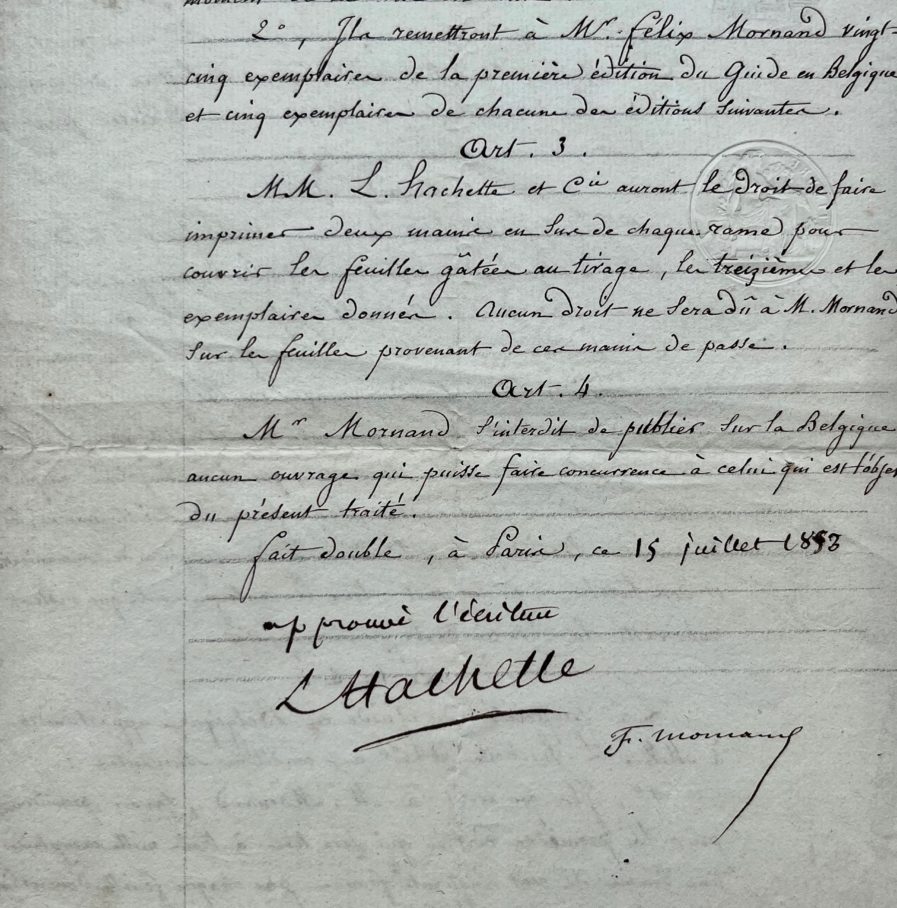 2°, Ils remettront à Mr. Félix Mornand vingt-
cinq exemplaires de la première édition du Guide en Belgique
et cinq exemplaires de chacune des éditions suivantes.
Art. 3.
MM. L. Hachette et Cie auront le droit de faire
imprimer deux mains en sus de chaque rame pour
couvrir les feuilles gâtées au tirage, les treizièmes et les
exemplaires donnés. Aucun droit ne sera dû à M. Mornand
sur les feuilles provenant de ces mains de passe.
Art. 4.
Mr Mornand s'interdit de publier sur la Belgique
aucun ouvrage qui puisse faire concurrence à celui qui est l'objet
du présent traité.
fait double, à Paris, ce 15 juillet 1853
approuvé l'écriture
L Hachette
F. Mornand